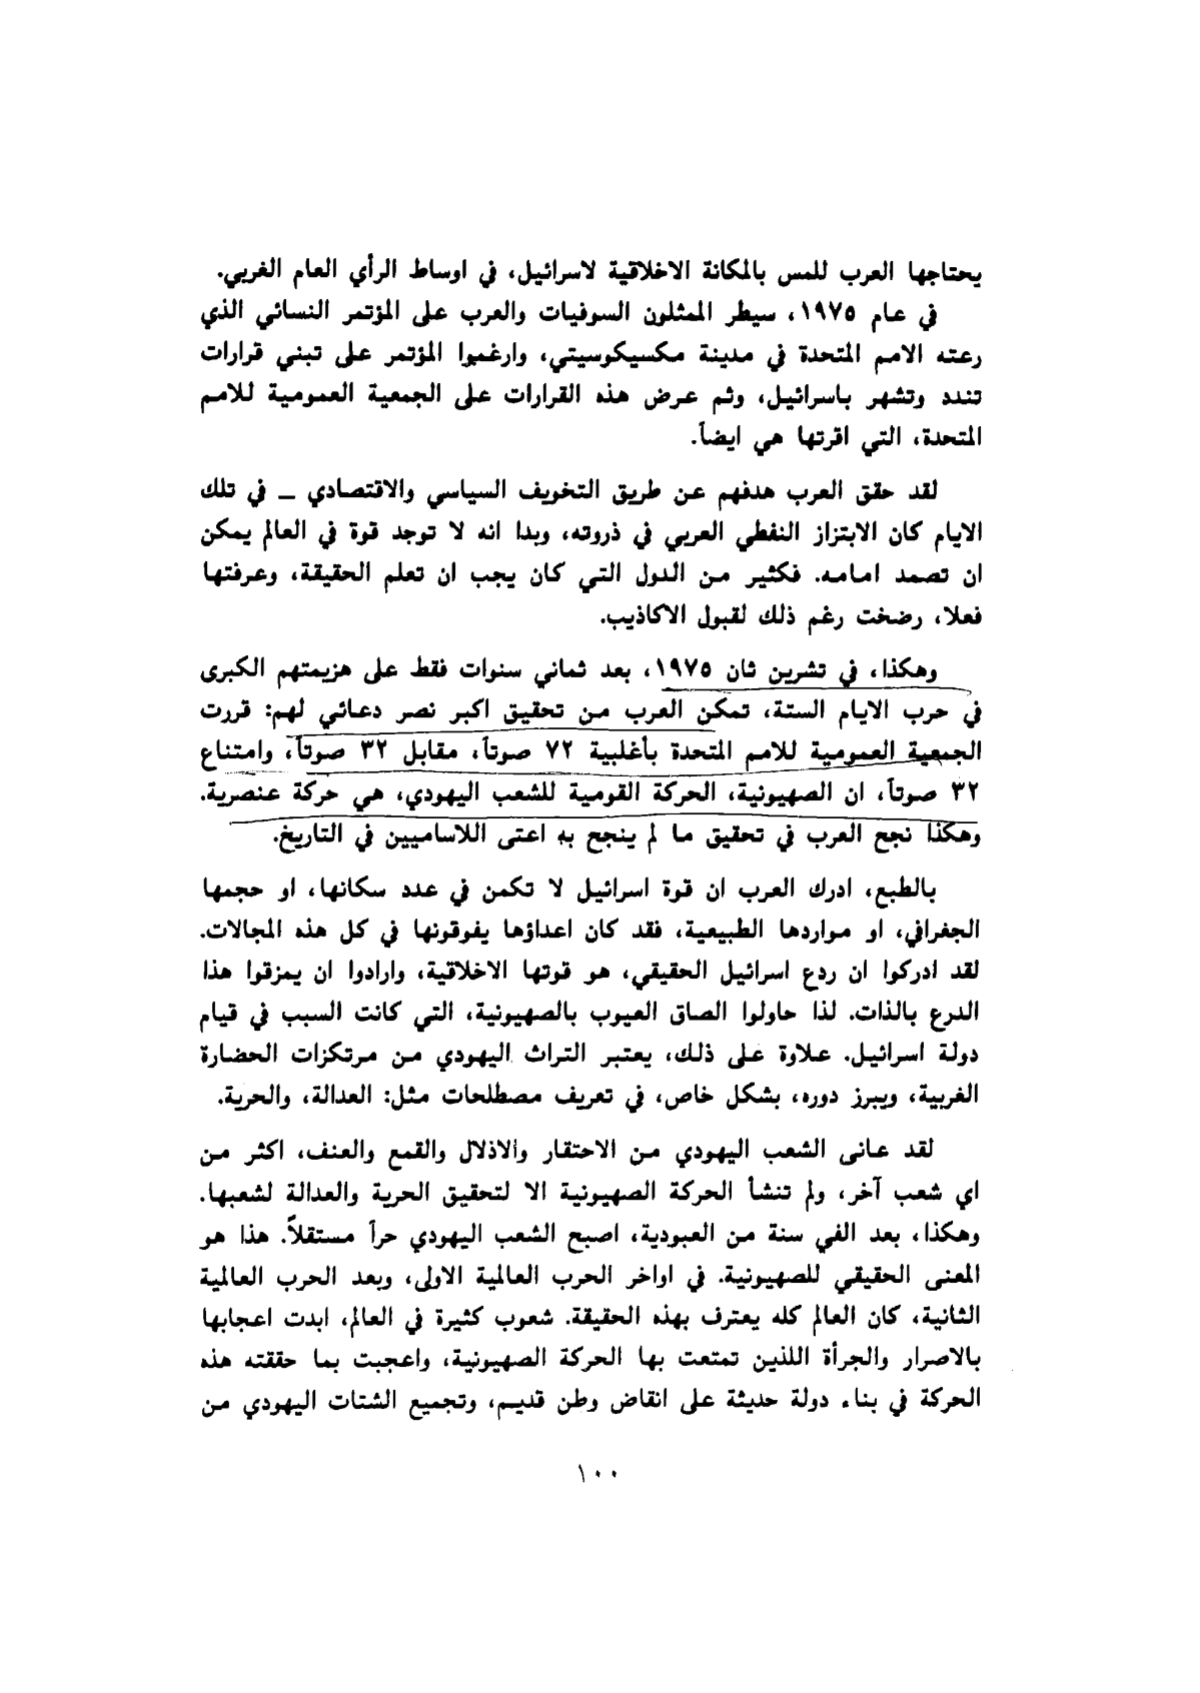 يحتاجها العرب للمس بالمكانة الاخلاقية لاسرائيل، في اوساط الرأي العام الغربي.
في عام ١٩٧٥، سيطر الممثلون السوفيات والعرب على المؤتمر النسائي الذي
رعته الامم المتحدة في مدينة مكسيكوسيتي، وارغموا المؤتمر على تبني قرارات
تندد وتشهر باسرائيل، وثم عرض هذه القرارات على الجمعية العمومية للامم
المتحدة، التي اقرتها هي ايضاً.
لقد حقق العرب هدفهم عن طريق التخويف السياسي والاقتصادي ــ في تلك
الايام كان الابتزاز النفطي العربي في ذروته، وبدا انه لا توجد قوة في العالم يمكن
ان تصمد امامه. فكثير من الدول التي كان يجب ان تعلم الحقيقة، وعرفتها
فعلا، رضخت رغم ذلك لقبول الاكاذيب.
وهكذا، في تشرين ثان ١٩٧٥، بعد ثماني سنوات فقط على هزيمتهم الكبرى
في حرب الايام الستة، تمكن العرب من تحقيق اكبر نصر دعائي لهم: قررت
الجمعية العمومية للامم المتحدة بأغلبية ٧٢ صوتاً، مقابل ٣٢ صوتاً، وامتناع
٣٢ صوتاً، ان الصهيونية، الحركة القومية للشعب اليهودي، هي حركة عنصرية.
وهكذا نجح العرب في تحقيق ما لم ينجح به اعتى اللاساميين في التاريخ.
بالطبع، ادرك العرب ان قوة اسرائيل لا تكمن في عدد سكانها، او حجمها
الجغرافي، او مواردها الطبيعية، فقد كان اعداؤها يفوقونها في كل هذه المجالات.
لقد ادركوا ان ردع اسرائيل الحقيقي، هو قوتها الاخلاقية، وارادوا ان يمزقوا هذا
الدرع بالذات. لذا حاولوا الصاق العيوب بالصهيونية، التي كانت السبب في قيام
دولة اسرائيل. علاوة على ذلك، يعتبر التراث اليهودي من مرتكزات الحضارة
الغربية، ويبرز دوره، بشكل خاص، في تعريف مصطلحات مثل: العدالة، والحرية.
لقد عانى الشعب اليهودي من الاحتقار والاذلال والقمع والعنف، اكثر من
اي شعب آخر، ولم تنشأ الحركة الصهيونية الا لتحقيق الحرية والعدالة لشعبها.
وهكذا، بعد الفي سنة من العبودية، اصبح الشعب اليهودي حراً مستقلاً. هذا هو
المعنى الحقيقي للصهيونية. في اواخر الحرب العالمية الاولى، وبعد الحرب العالمية
الثانية، كان العالم كله يعترف بهذه الحقيقة. شعوب كثيرة في العالم، ابدت اعجابها
بالاصرار والجرأة اللذين تمتعت بها الحركة الصهيونية، واعجبت بما حققته هذه
الحركة في بناء دولة حديثة على انقاض وطن قديم، وتجميع الشتات اليهودي من
١٠٠